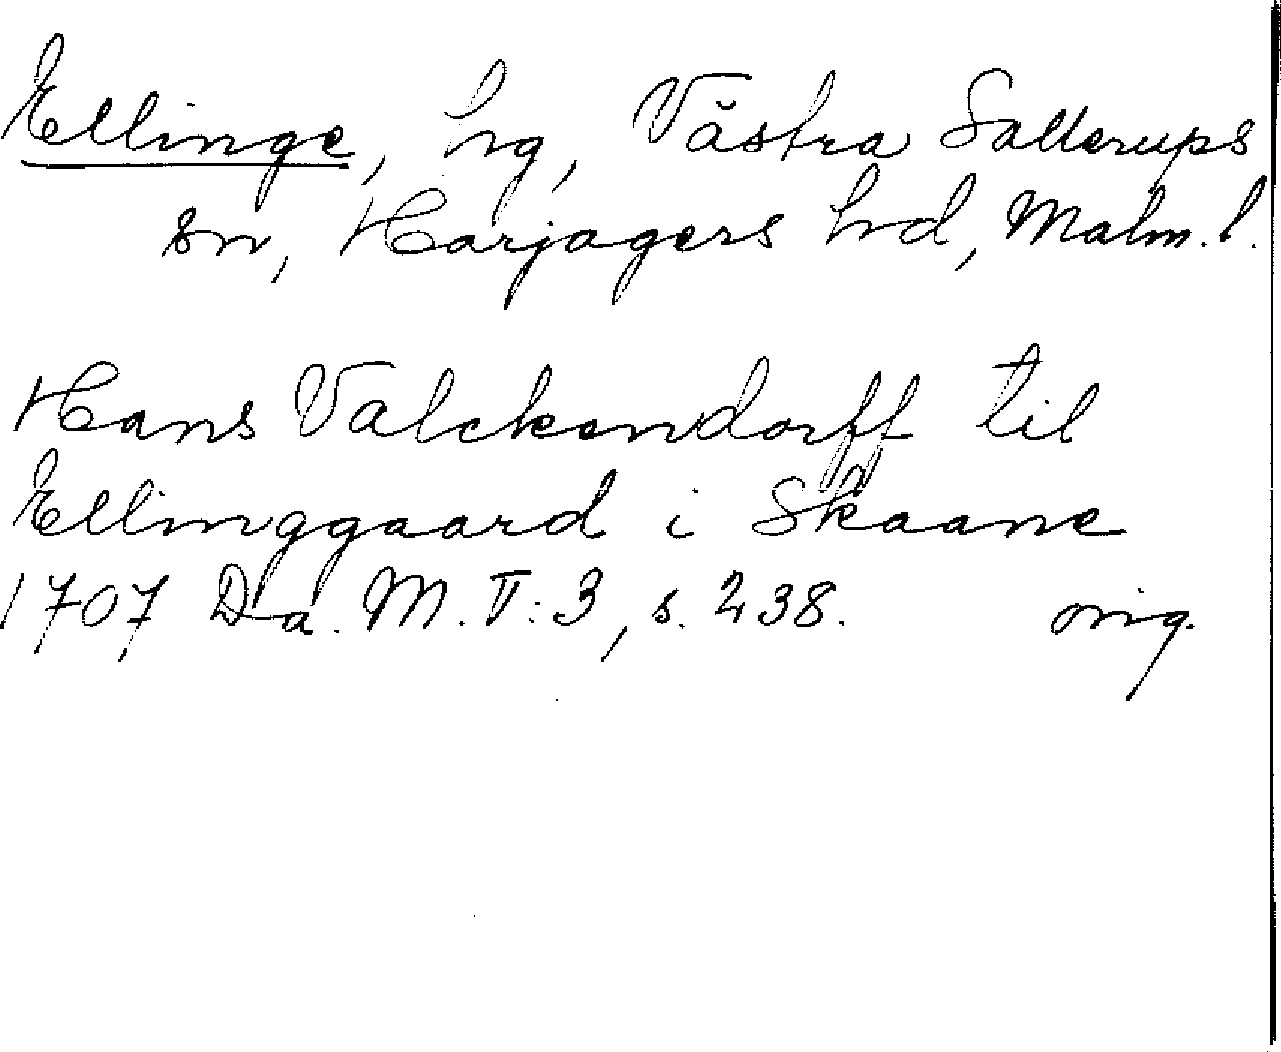 Ellinge, hg, Västra Sallerups
sn, Harjagers hd, Malm. l.
Hans Valckendorff til
Ellinggaard i Skaane
1707 Da. M. V: 3, s. 238. orig.